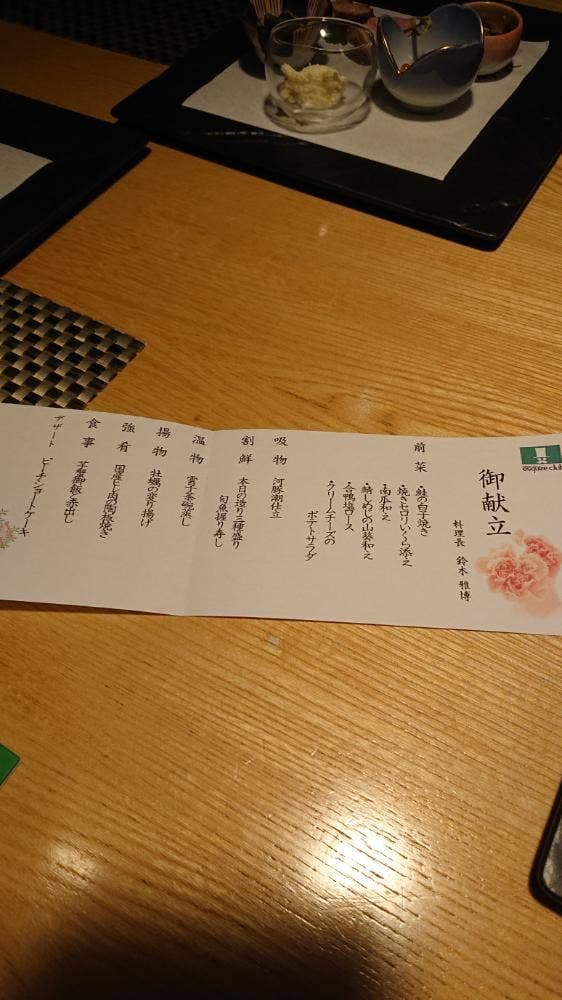 esquire club
御献立
料理長 鈴木雅博
前菜
・鮭の白子焼き
・焼きセロリいくら添え
・南瓜和え
・鯖しめじの山葵和え
・合鴨塩ロース
・クリームチーズの
ポテトサラダ
吸物
河豚潮仕立
割鮮
本日の造り三種盛り
旬魚握り寿し
温物
雲子茶碗蒸し
揚物
牡蠣の変り揚げ
強肴
国産ヒレ肉の陶板焼き
食事
赤出し
デザート
ピーチショートケーキ